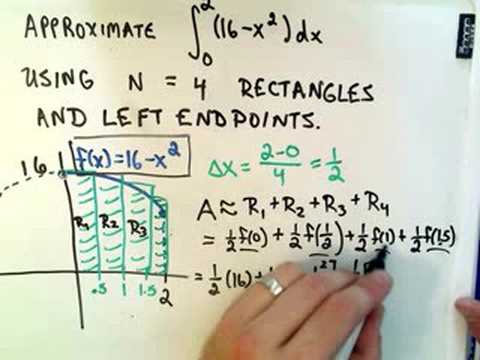 APPROXIMATE ∫₀² (16-x²)dx
USING N = 4 RECTANGLES
AND LEFT ENDPOINTS.
16 f(x)=16-x²
Δx = (2-0)/4 = 1/2
A ≈ R₁ + R₂ + R₃ + R₄
R₁ R₂ R₃
= 1/2 f(0) + 1/2 f(1/2) + 1/2 f(1) + 1/2 f(1.5)
.5 1 1.5 2
= 1/2 (16) +